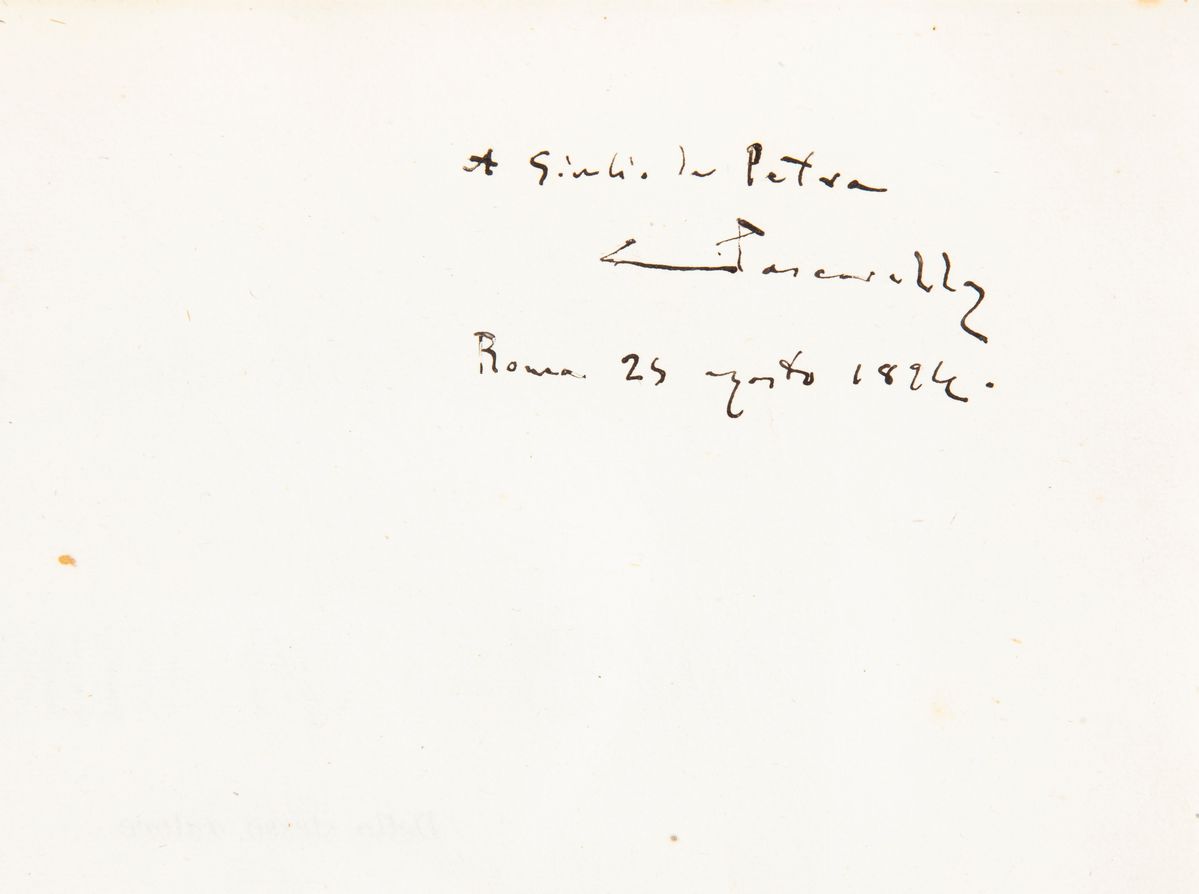 A Giulio de Petra
C Pascarella
Roma 25 agosto 1894.
Dello stesso autore